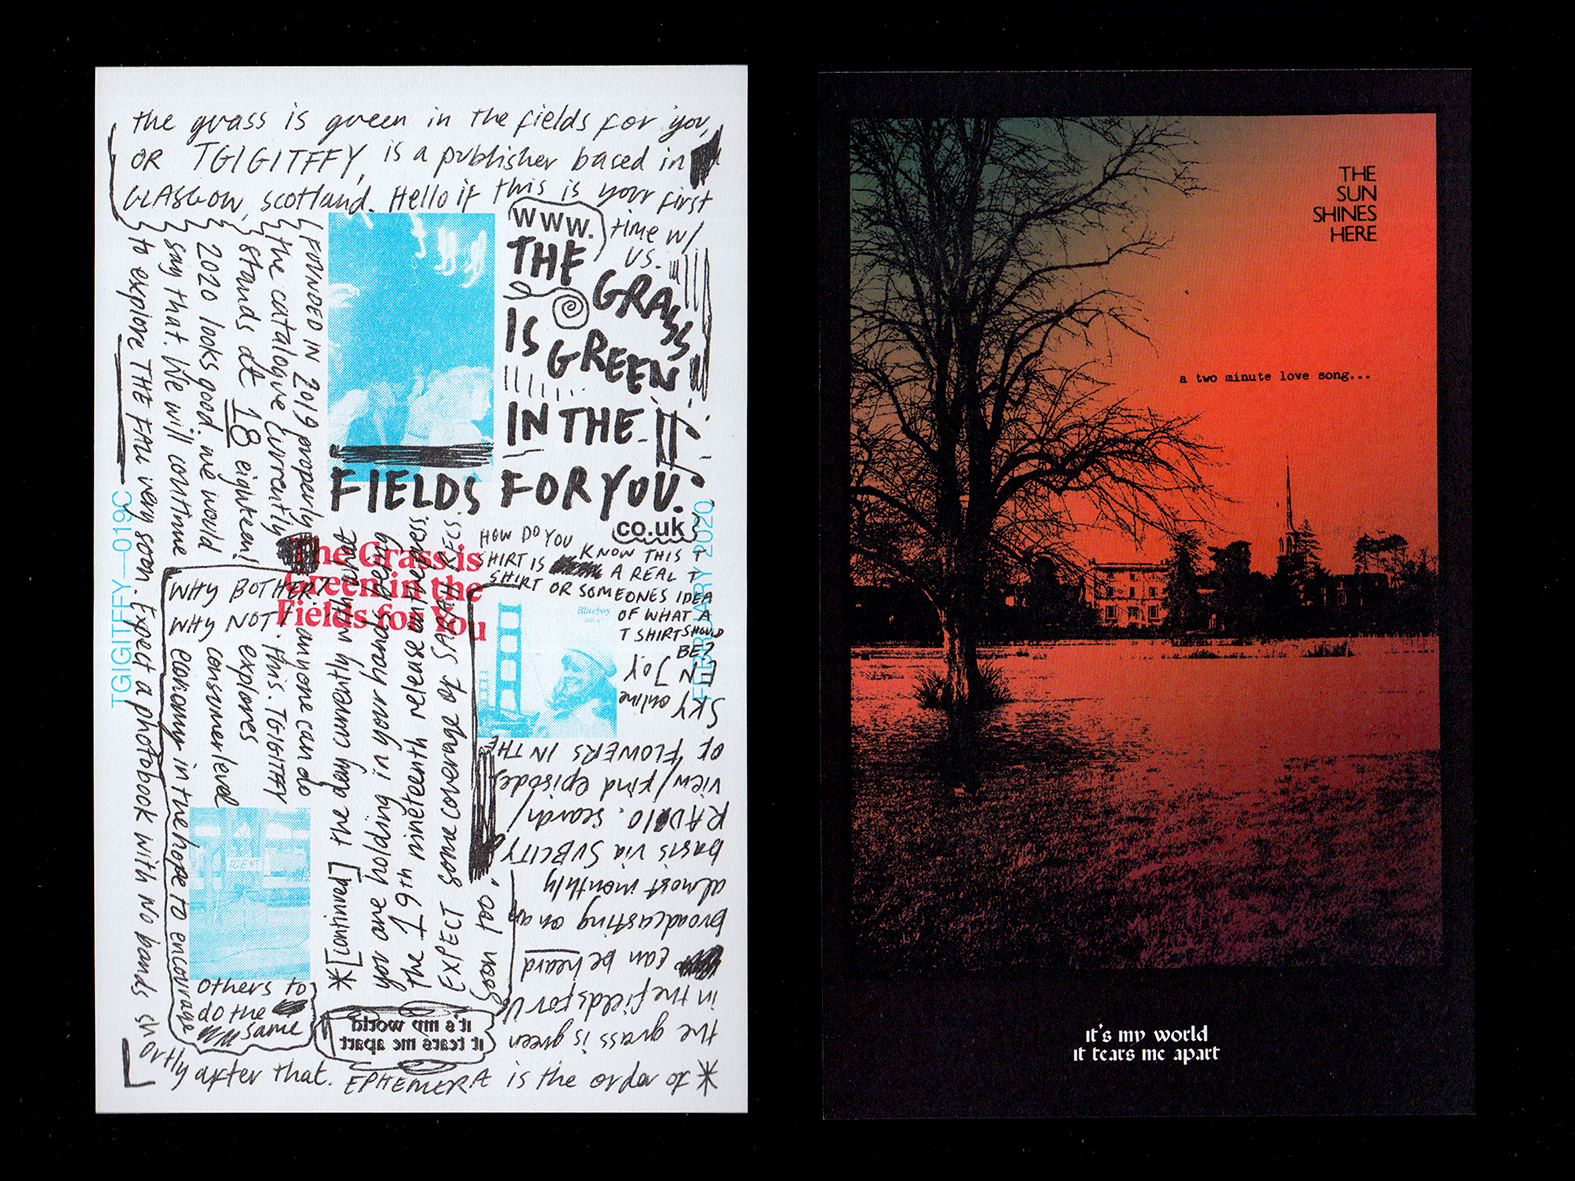 the grass is green in the fields for you,
OR TGIGITFFY, is a publisher based in
GLASGOW, scotland. Hello if this is your first
time w/
us.
FOUNDED IN 2019 properly
the catalogue currently
stands at 18 eighteen!
2020 looks good. we would
say that. We will continue
to explore THE very soon. Expect a photobook with no bands shortly after that. EPHEMERA is the order of *
www.
THE
GRASS
IS
GREEN
IN THE
FIELDS FOR YOU.
co.uk
The Grass is
Green in the
Fields for You
TGIGITFFY—019C
FEBRUARY 2020
HOW DO YOU KNOW THIS T
SHIRT IS A REAL T
SHIRT OR SOMEONES IDEA
OF WHAT A
T SHIRT SHOULD
BE?
Blueboy
WHY BOTHER?
WHY NOT? anyone can do
this. TGIGITFFY
explores
consumer level
economy in the hope to encourage
others to
do the
same
*[continued] the day currently with what
you are holding in your hands being
the 19th nineteenth release
EXPECT some coverage of
Soon too.
*
the grass is green
in the fields for U
can be heard
broadcasting on an
almost monthly
basis via SUBCITY
RADIO. search/
view/find episodes
of FLOWERS IN THE
SKY online
ENJOY.
it's my world
it tears me apart
THE
SUN
SHINES
HERE
a two minute love song...
it's my world
it tears me apart